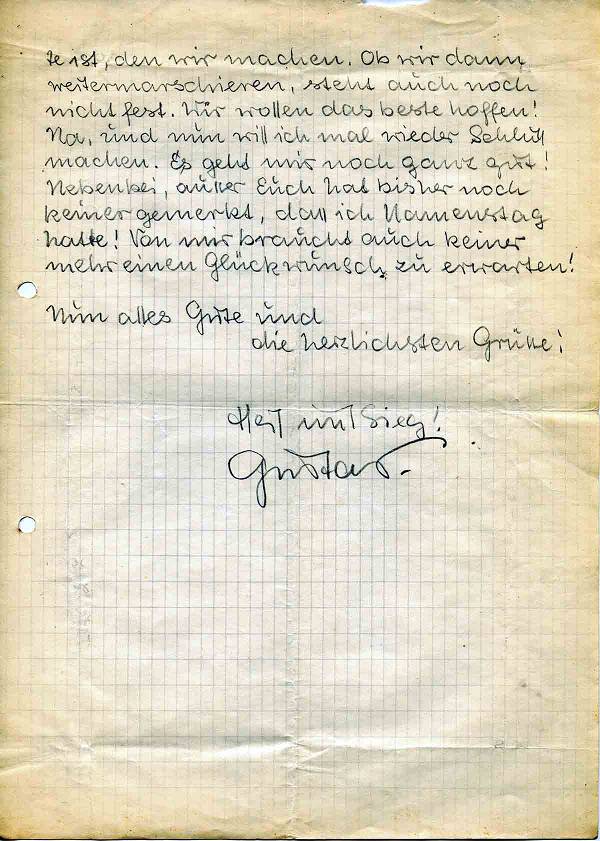 te ist, den wir machen. Ob wir dann
weitermarschieren, steht auch noch
nicht fest. Wir wollen das beste hoffen!
Na, und nun will ich mal wieder Schluß
machen. Es geht mir noch ganz gut!
Nebenbei, außer Euch hat bisher noch
keiner gemerkt, daß ich Namenstag
hatte! Von mir braucht auch keiner
mehr einen Glückwunsch zu erwarten!
Nun alles Gute und
die herzlichsten Grüße!
Heil und Sieg!
Gustav.